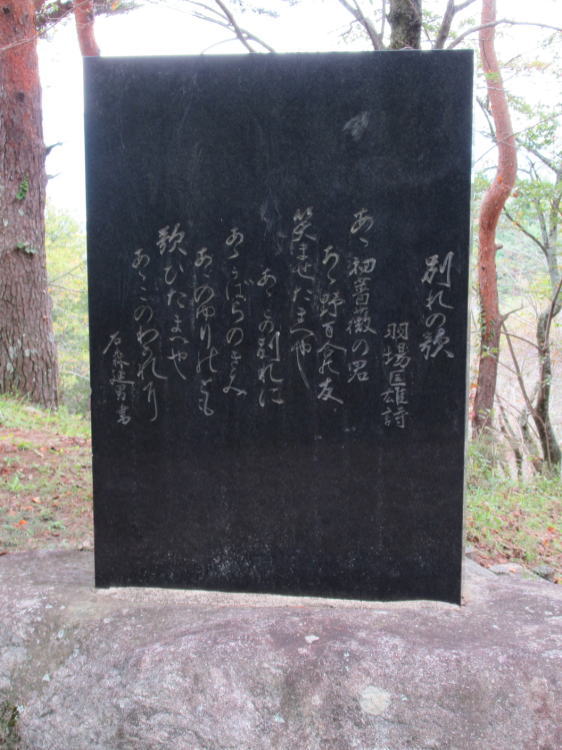 別れの歌
羽場匡雄詩
あゝ初薔薇の君
あゝ野百合の友
笑ませたまへや
あゝこの別れに
あゝうばらのきみ
あゝのゆりのとも
歌ひたまへや
あゝこのわかれに
書